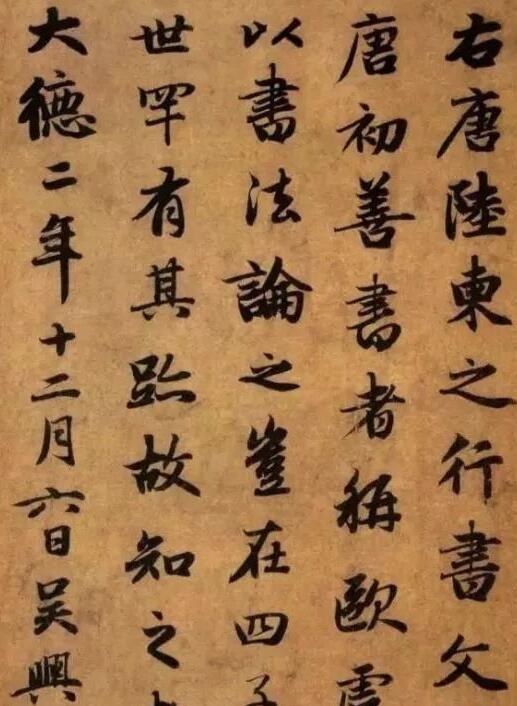 右唐陸柬之行書文
唐初善書者稱歐虞
以書法論之豈在四子
世罕有其跡故知之
大德二年十二月六日吴興